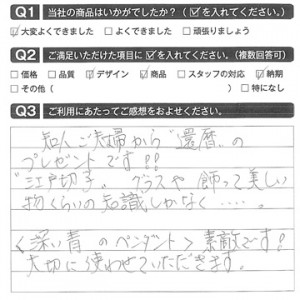 Q1 当社の商品はいかがでしたか?(☑を入れてください。)
☑大変よくできました □よくできました □頑張りましょう
Q2 ご満足いただけた項目に☑を入れてください。(複数回答可)
□価格 □品質 ☑デザイン ☑商品 □スタッフの対応 ☑納期
□その他( ) □特になし
Q3 ご利用にあたってご感想をおよせください。
知人ご夫婦から"還暦"の
プレゼントです!!
"江戸切子" グラスや飾って美しい
物くらいの知識しかなく……。
<深い青のペンダント>素敵です!
大切に使わせていただきます。